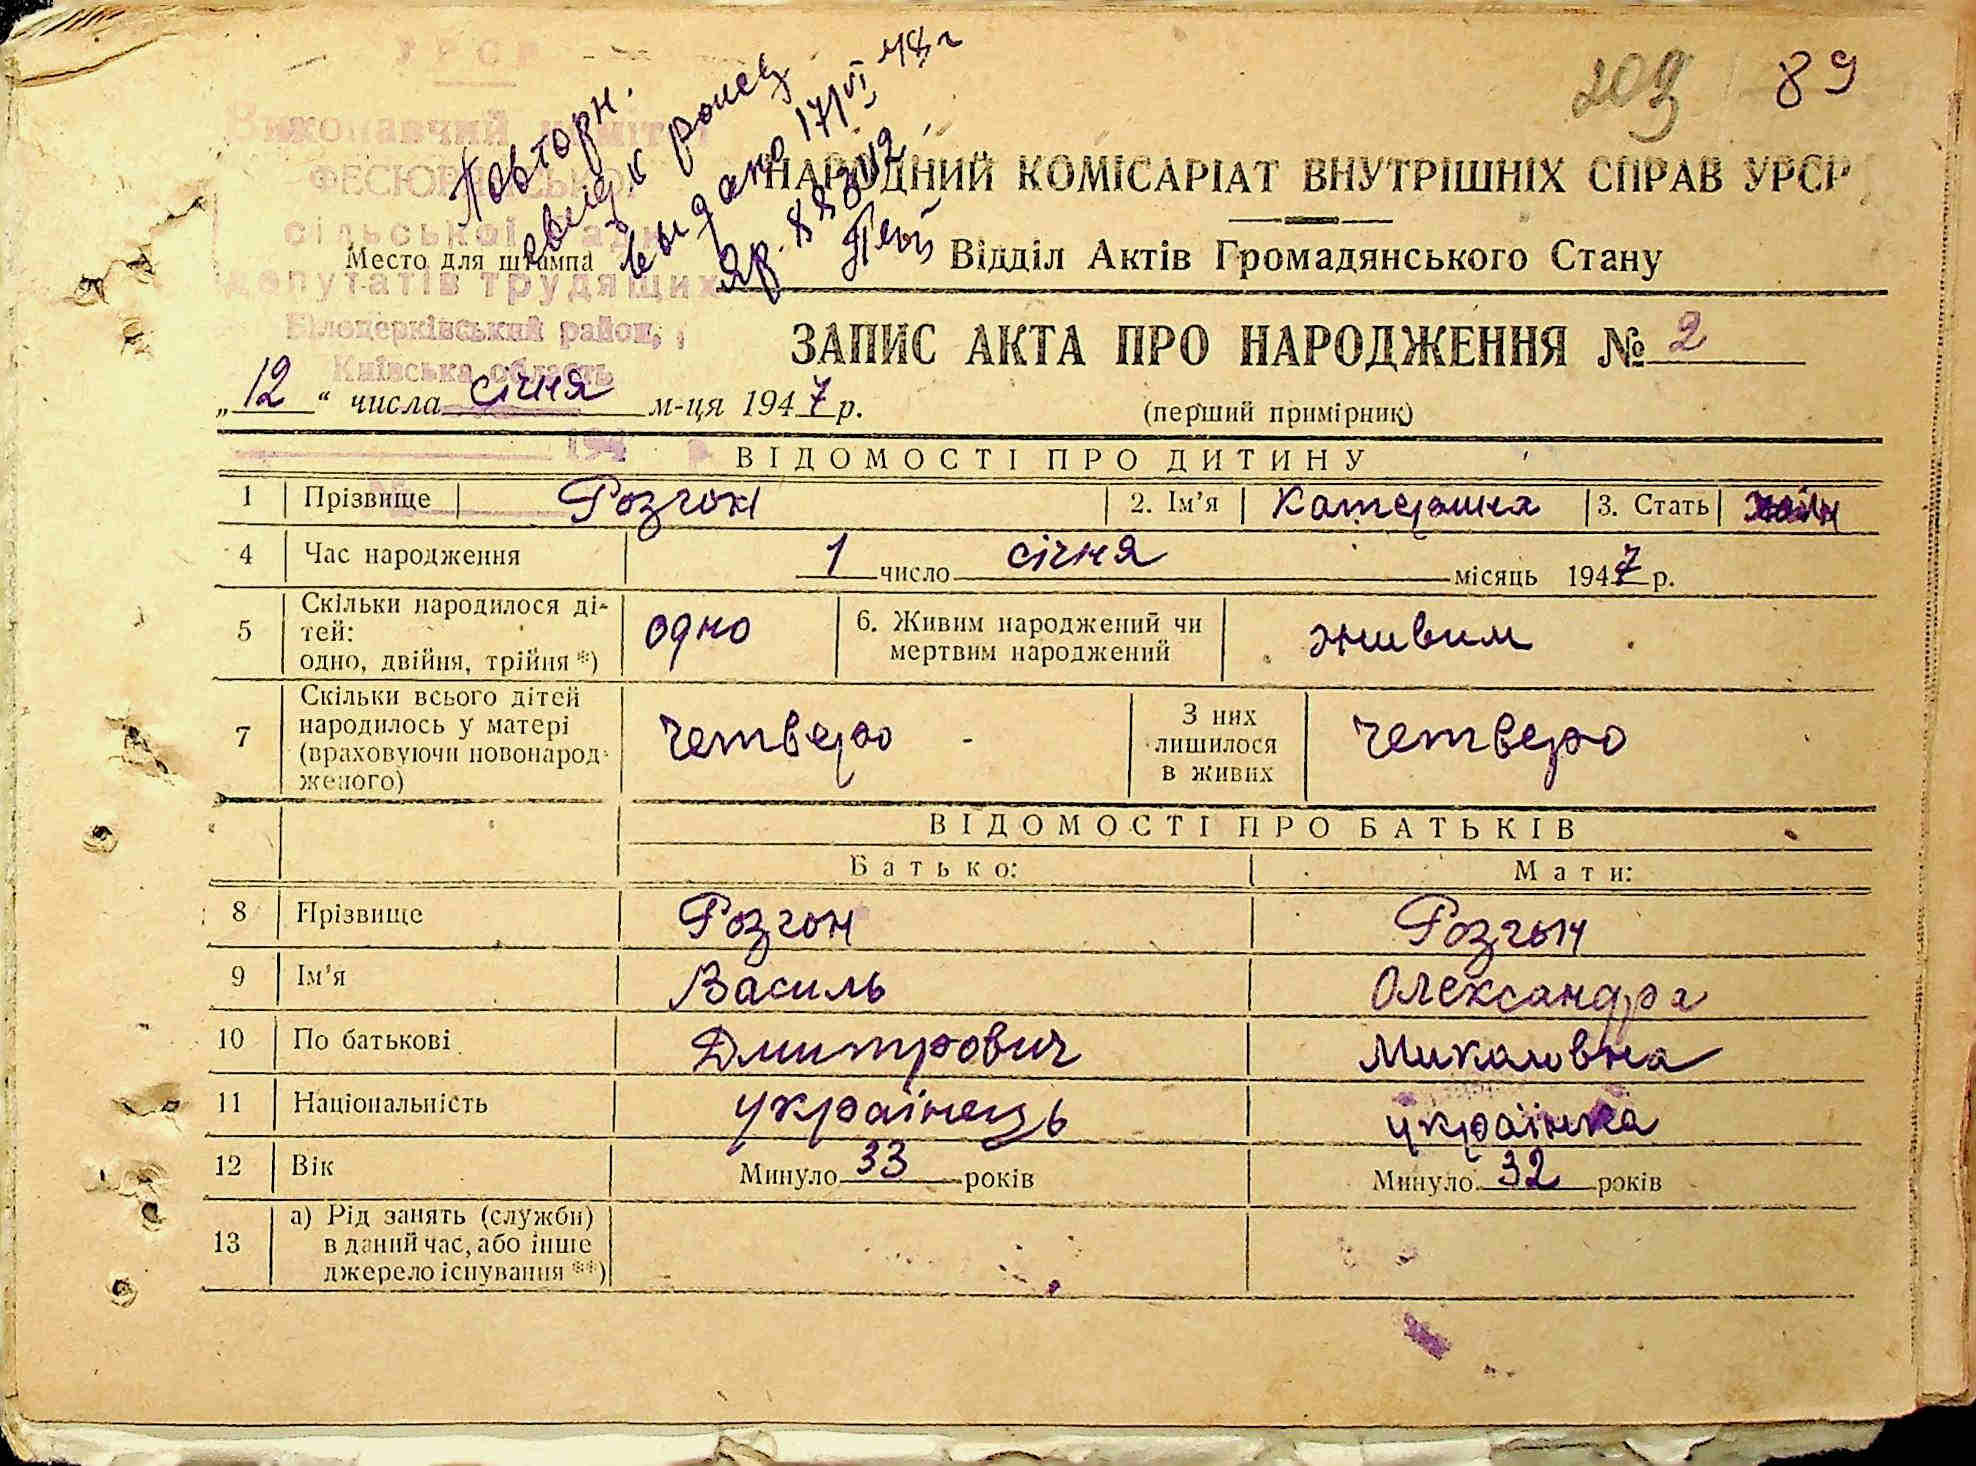 209 89
УРСР
Виконавчий комітет
ФЕСЮРІВСЬКОЇ
сільської Ради
депутатів трудящих
Білоцерківський район,
Київська область
194 р.
№
Повторн.
видано 17/VI 48 г
НАРОДНИЙ КОМІСАРІАТ ВНУТРІШНІХ СПРАВ УРСР
Место для штампа
Відділ Актів Громадянського Стану
ЗАПИС АКТА ПРО НАРОДЖЕННЯ № 2
„12“ числа січня м-ця 1947 р.
(перший примірник)
ВІДОМОСТІ ПРО ДИТИНУ
1 Прізвище Розгон 2. Ім'я Катерина 3. Стать
4 Час народження 1 число січня місяць 1947 р.
5 Скільки народилося ді-
тей:
одно, двійня, трійня *) одно 6. Живим народжений чи
мертвим народжений живим
7 Скільки всього дітей
народилось у матері
(враховуючи новонарод-
женого) четверо З них
лишилося
в живих четверо
ВІДОМОСТІ ПРО БАТЬКІВ
Батько: Мати:
8 Прізвище Розгон Розгон
9 Ім'я Василь Олександра
10 По батькові Дмитрович Миколовна
11 Національність українець українка
12 Вік Минуло 33 років Минуло 32 років
13 а) Рід занять (служби)
в даний час, або інше
джерело існування **)